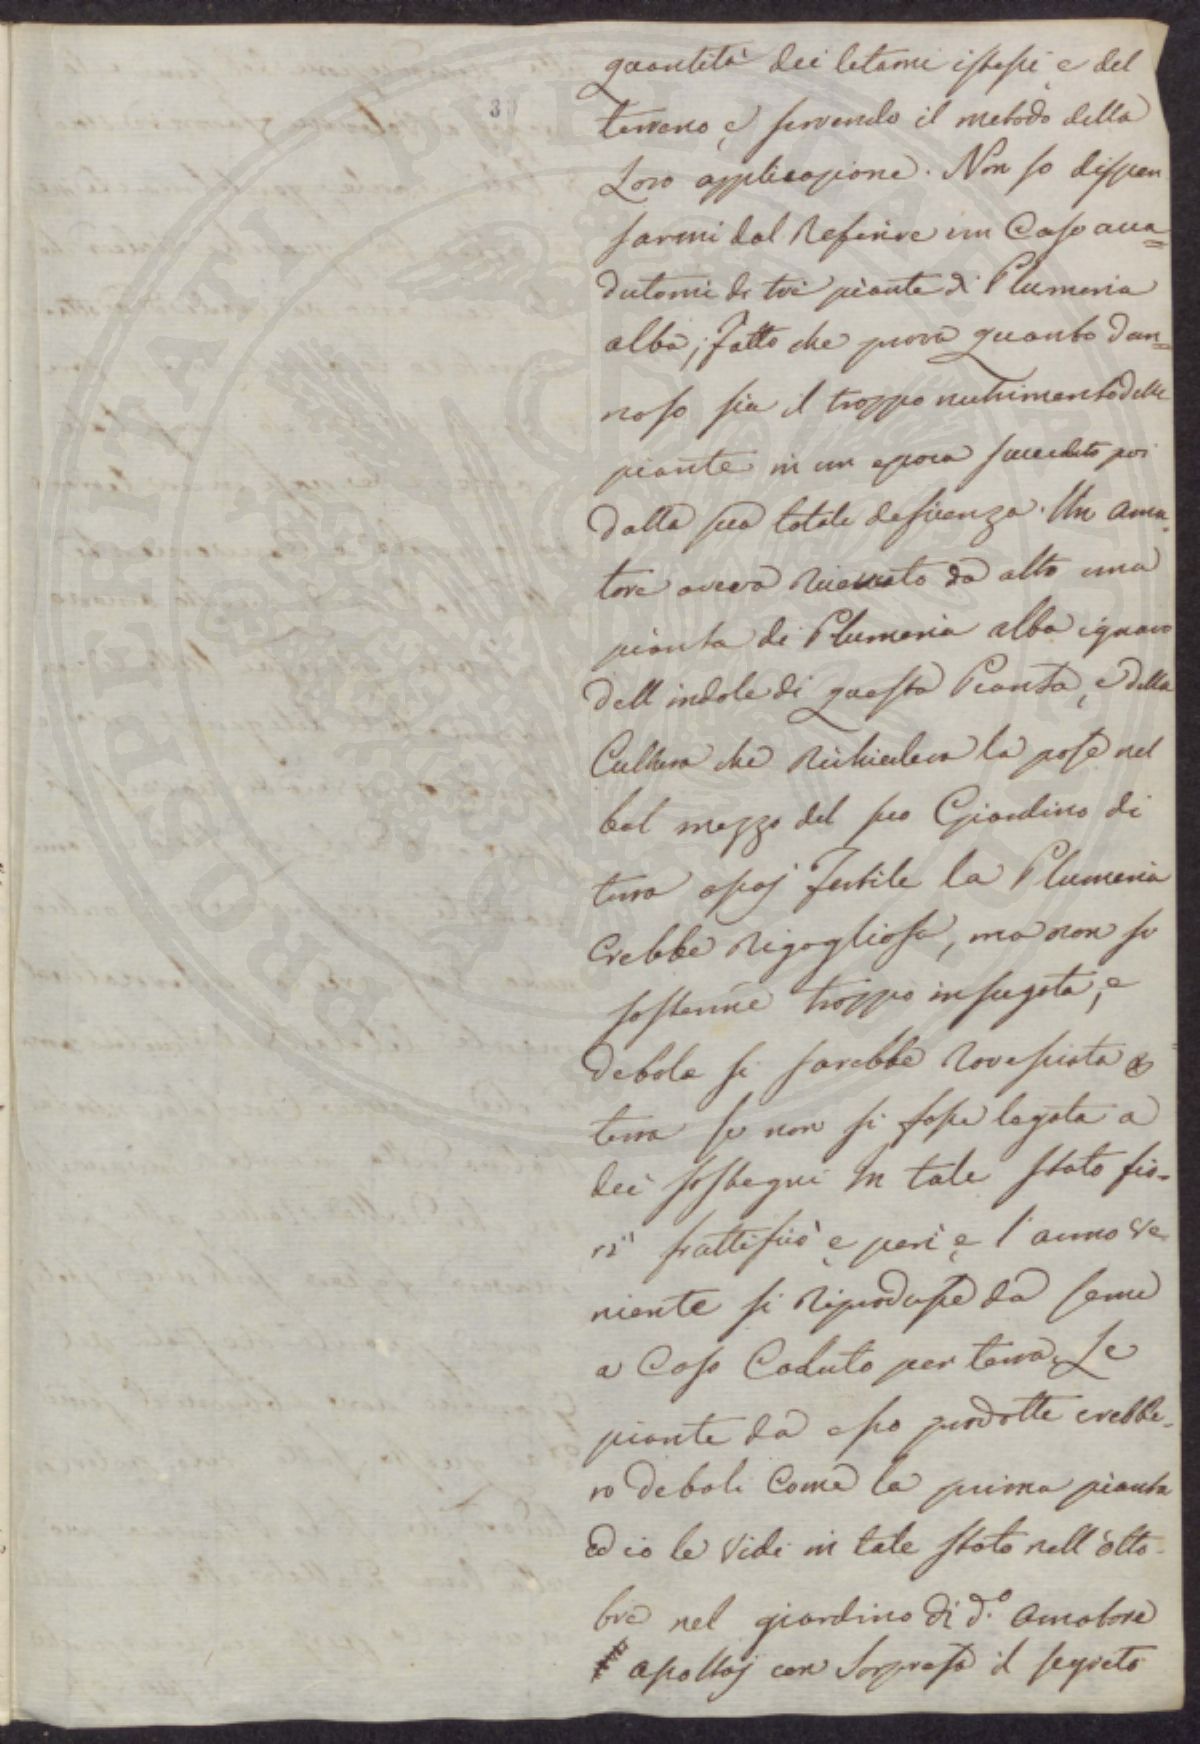 PROSPERITATI PVBLICAE
30
quantità dei letami istessi e del
terreno, e servendo il metodo della
Loro applicazione. Non so dispen
sarmi dal Referire un Caso acca=
dutomi di tre piante di Plumeria
alba, fatto che prova quanto dan=
noso sia il troppo nutrimento delle
piante in un epoca succeduto poi
dalla sua totale deficenza. Un ama-
tore aveva Ricevuto da altro una
pianta di Plumeria alba ignaro
dell indole di questa Pianta, e della
Cultura che Richiedeva la pose nel
bel mezzo del suo Giardino di
terra assaj fertile la Plumeria
Crebbe Rigogliosa, ma non si
sostenne troppo insugata, e
debole si sarebbe Rovesciata a
terra se non si fosse legata a
dei sostegni In tale stato fio-
rì fruttificò e perì e l'anno ve-
niente si Riprodusse da seme
a Caso Caduto per terra. Le
piante da esso prodotte crebbe-
ro deboli Come la prima pianta
ed io le Vidi in tale stato nell otto-
bre nel giardino di d.o amatore
ascoltaj con Sorpresa il segreto